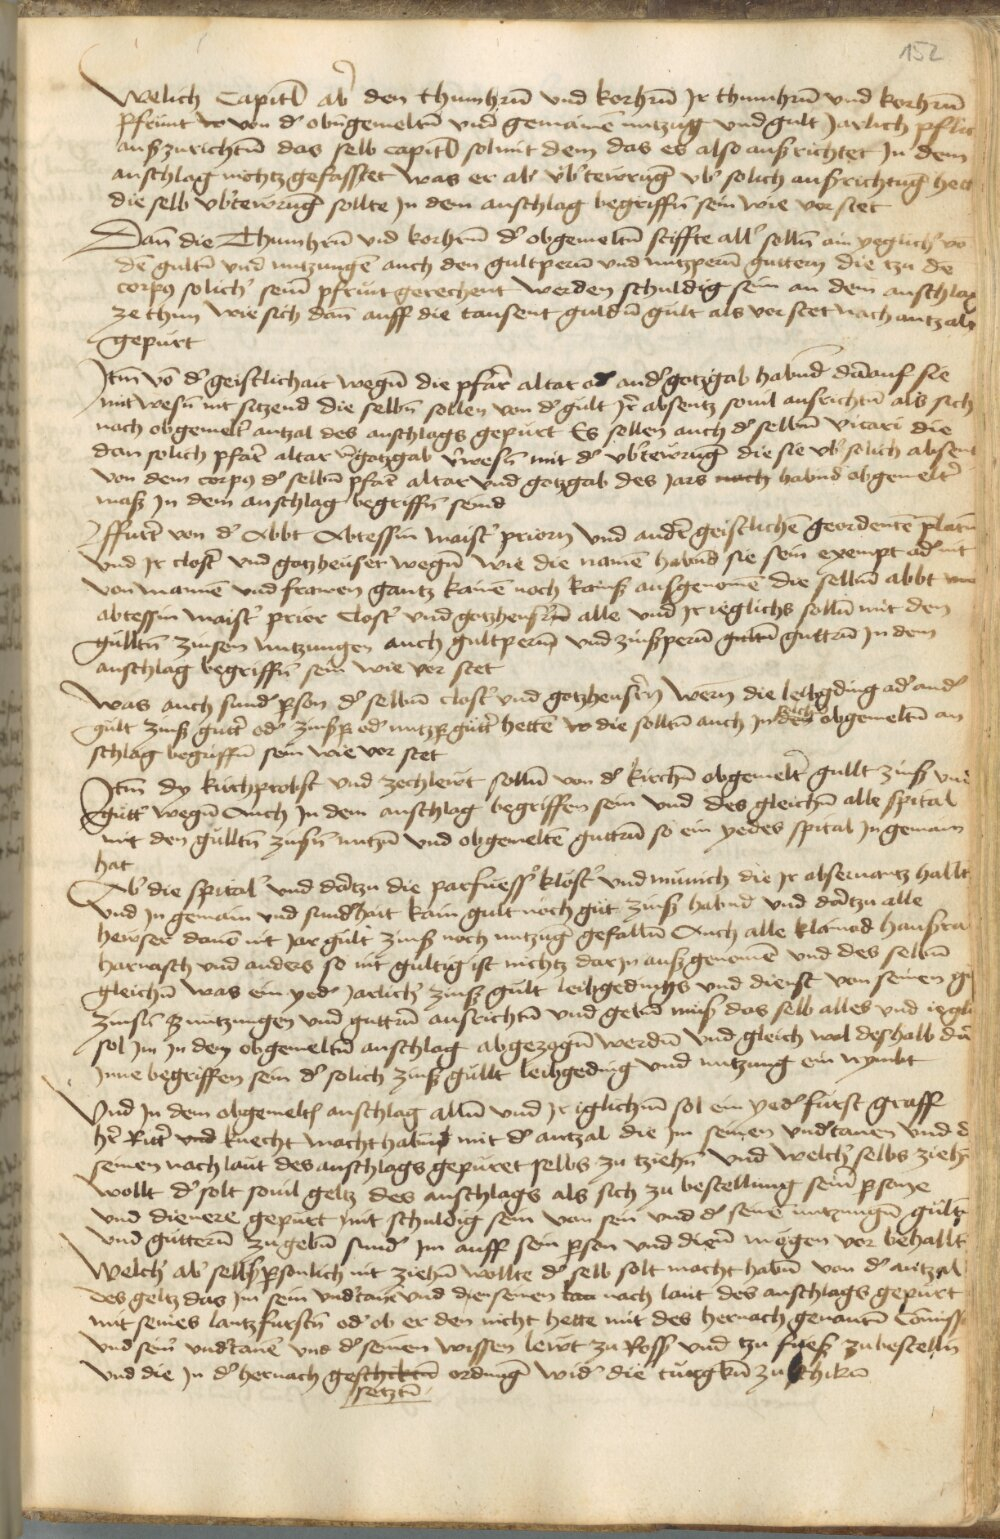 152
Welich Capitl ab' den thumhrn̄ vnd korhrn̄ Jr thumhrn̄ vnd korhrn̄
pfrunt von d' obngemeltn̄ vnd gemaine nutzug vnd gult Jarlich
außzurichtn̄ das selb capitl sol mit dem das es also außrichtet Jn dem
anschlag nichtz gefasstet was er ab' vb'tewrung vb' solich außrichtung hett
die selb vb'tewrung sollte Jn dem anschlag begriffn̄ sein wie vor stet
Dan̄ die Thumhrn̄ vnd korhrn̄ d' obgemeltn̄ stiffte all' solln̄ ain yeglich' vo
den gultn̄ vnd nutzungen auch den gultpern̄ vnd nutzpern̄ guttern die tzu de
corpus solich' sein' pfrunt gerechent werden schuldig sein an dem anschlag
ze thun wie sich dan̄ auff die tausent guldn̄ gult als vor stet nach antzal
gepurt
Jtm̄ vō d' geistlichait wegn̄ die pfar altar od' and' gotzgab habnd darauf sie
mit wesn̄ nit sitzend die selbn̄ sollen von d' gult Jr absentz souil ausrichtn̄ als sich
nach obgemelt' antzal des anschlags gepurt Es sollen auch d' selbn̄ vicari die
dan solich pfar altar gotzgab v'wesn̄ mit d' vb'tewrung die sie vb' solich absent
von dem corpus d' selbn̄ pfarr altar vnd gotzgab des Jars habnd obgemelt'
maß Jn dem anschlag begriffn̄ seind
Furt' von d' Abbt Abtessin maist' priorn vnd ander geistlichen geordente
vnd Jr clost' vnd gotzheuser wegn̄ wie die namē habnd sie sein exempt od' nit
von mannen vnd frawen gantz kainē noch kains ausgenomē die selbn̄ abbt
abtessin maist' prior Clost' vnd gotzheusern̄ alle vnd Jr ieglichs solln̄ mit den
gulltn̄ zinsen nutzungen auch gultpern̄ vnd zinßpern̄ guttrn̄ Jn dem
anschlag begriffn̄ sein wie vor stet
Was auch sund' p'son d' selbn̄ clost' vnd gotzheusern̄ wern̄ die leibgding od' and'
gult zinß gutt' od' zinßp' od' nutzp' gutt' hette die solltn̄ auch Jn obgemeltn̄ an
schlag begriffn̄ sein wie vor stet
Jtm̄ dy kirchprobst vnd zechlewt solln̄ von d' kirchn̄ obgemelt' gullt zinß vnd
gutt' wegn̄ Auch Jn dem anschlag begriffen sein vnd des gleichn̄ alle spital
mit den gulltn̄ zinsn̄ nutzn̄ vnd obgemelte guttrn̄ so ein yedes spital Jn gemain
hat
Ab' die spital' vnd dartzu die parfuess' klost' vnd munich die Jr obseruantz hallt
vnd Jn gemain vnd sund'hait kain gult noch gut zinß habnd vnd dartzu alle
hewser dauō nit Jar gult zinß noch nutzug gefalln̄ Auch alle klainod haußra
harnasch vnd anders so nit gultig ist nichtz darjn außgenomē vnd des selbn̄
gleichn̄ was ein yed' Jarlich' zinß gult leibgedings vnd dienst von seinen
zinsn̄ nutzungen vnd guttrn̄ ausrichtn̄ vnd gebn̄ muß das selb alles vnd
sol im Jn dem obgemeltn̄ anschlag abgezogn̄ werdn̄ vnd gleich wol deshalb
Jnne begriffen sein d' solich zinß gullt leibgeding vnd nutzung ein nymbt
Vnd Jn dem obgemelt' anschlag alln̄ vnd Jr iglichm̄ sol ein yed' furst graff
hr' Ritt' knecht macht habn̄ mit d' antzal die im seinen vndtanen vnd
seinen nach laut des anschlags gepuret selbs zu tziehn̄ vnd welch' selbs ziehn̄
wollt d' solt souil geltz des anschlags als sich zu bestellung sein' p'sone
vnd dienere gepurt nit schuldig sein von sein vnd d' seinē nutzungn̄ gultn̄
vnd guttern̄ zu gebn̄ sund' im auff sein p'son vnd dien' mogen vor behallt
Welch' ab' selbs p'sonlich nit ziehn̄ wollte d' selb solt macht habn̄ von d' antzal
des geltz das im sein vndtanē vnd den seinen nach laut des anschlags gepurt
mit seines lantzfurstn̄ od' ob er den nicht hette mit des hernach genantn̄
vnd sein' vndtanē vnd d' seinen wissen lewt zu Ross vnd tzu fuess zubestelln
vnd die Jn d' hernach geschicktn̄ ordnung wid' die turgkn̄ zu schikn̄
setztn̄